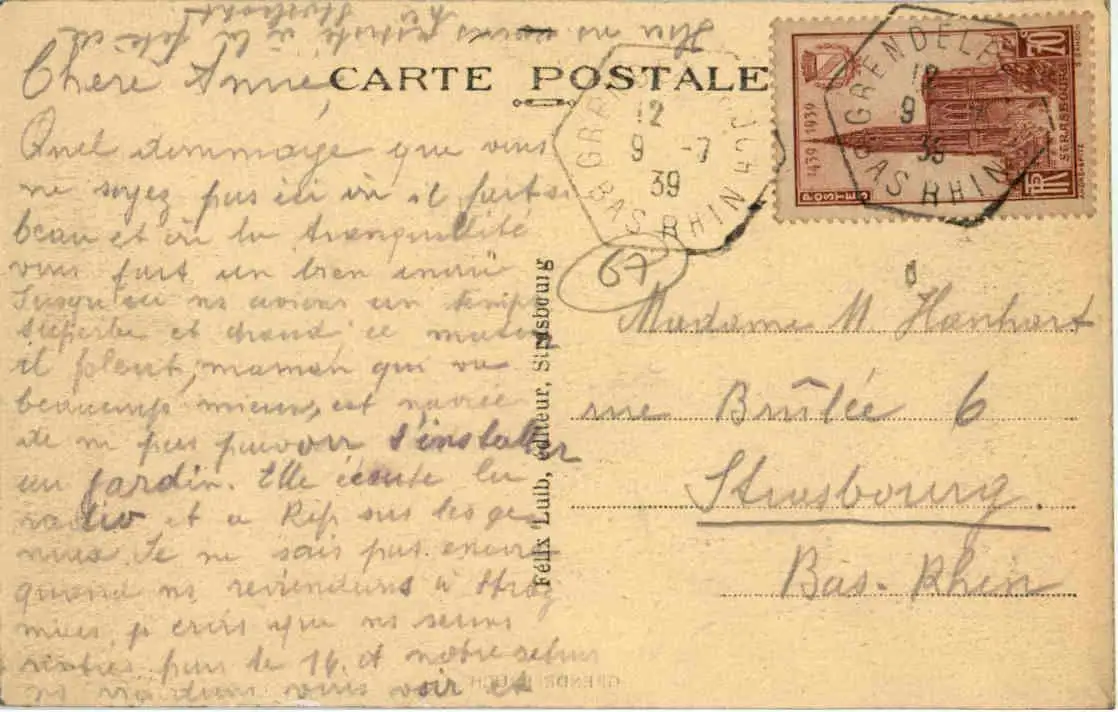 Chère Amie
Quel dommage que vous
ne soyez pas ici où il fait si
beau et où la tranquillité
vous fait un bien inouï
Jusqu'ici ns avions un temps
superbe et chaud ce matin
il pleut, maman qui va
beaucoup mieux, est navrée
de ne pas pouvoir s'installer
au jardin. Elle écoute la
radio et a Rip sur les ge-
noux. Je ne sais pas encore
quand ns reviendrons à Strg
mais je crois que ns serons
rentrés pour le 16. A notre retour
ns viendrons vous voir et
CARTE POSTALE
GRENDELBRUCH
12
9 -7
39
BAS RHIN
1439 1939
POSTES
70
STRASBOURG
GRENDELB
12
9
39
BAS RHIN
67
Félix Luib, éditeur, Strasbourg
Madame M. Hanhart
rue Brûlée 6
Strasbourg.
Bas-Rhin